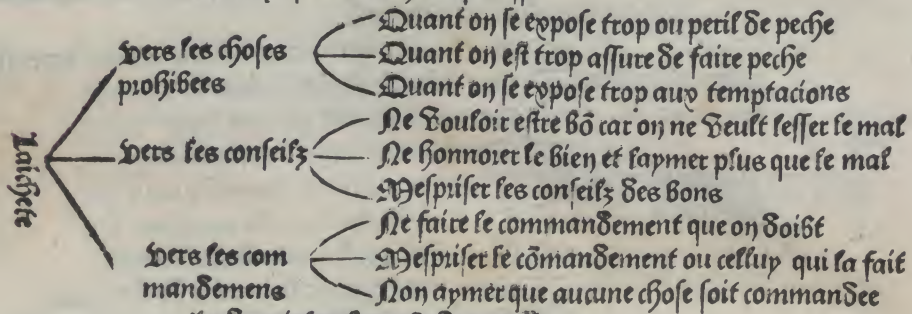 Laischete
Vers les choses
prohibees
Quant on se expose trop ou peril de peche
Quant on est trop assure de faire peche
Quant on se expose trop aux temptacions
Vers les conseilz
Ne Vouloir estre bõ car on ne Veult lesser le mal
Ne honnorer le bien et laymer plus que le mal
Mespriser les conseilz des bons
Vers les com
mandemens
Ne faire le commandement que on doibt
Mespriser le cõmandement ou celluy qui la fait
Non aymer que aucune chose soit commandee